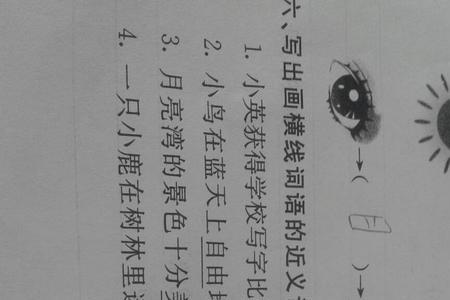 →( )→
六、写出画横线词语的近义
1. 小英获得学校写字比
2. 小鸟在蓝天上自由
3. 月亮湾的景色十分
4. 一只小鹿在树林里